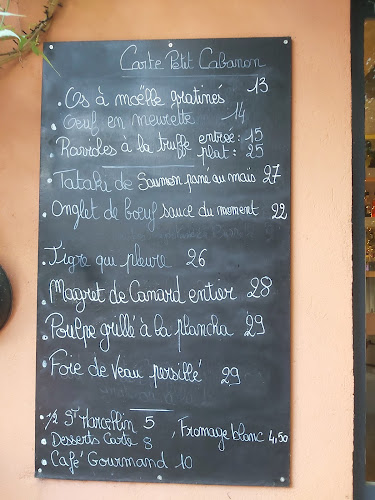 Carte Petit Cabanon
. Os à moëlle gratinés 13
. Oeuf en meurette 14
. Ravioles à la truffe entrée : 15
plat : 25
. Tataki de Saumon pané au maïs 27
. Onglet de boeuf sauce du moment 22
. Tigre qui pleure 26
. Magret de Canard entier 28
. Poulpe grillé à la plancha 29
. Foie de Veau persillé 29
. 1/2 St Marcellin 5 , Fromage blanc 4,50
. Desserts Carte 8
. Café Gourmand 10